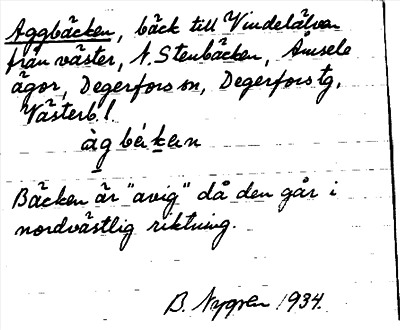 Aggbäcken, bäck till Vindelälven
från väster, N. Stenbäcken, Åmsele
ägor, Degerfors sn, Degerfors tg,
Västerb. l.
àgbéken
Bäcken är "avig" då den går i
nordvästlig riktning.
B. Nygren 1934.